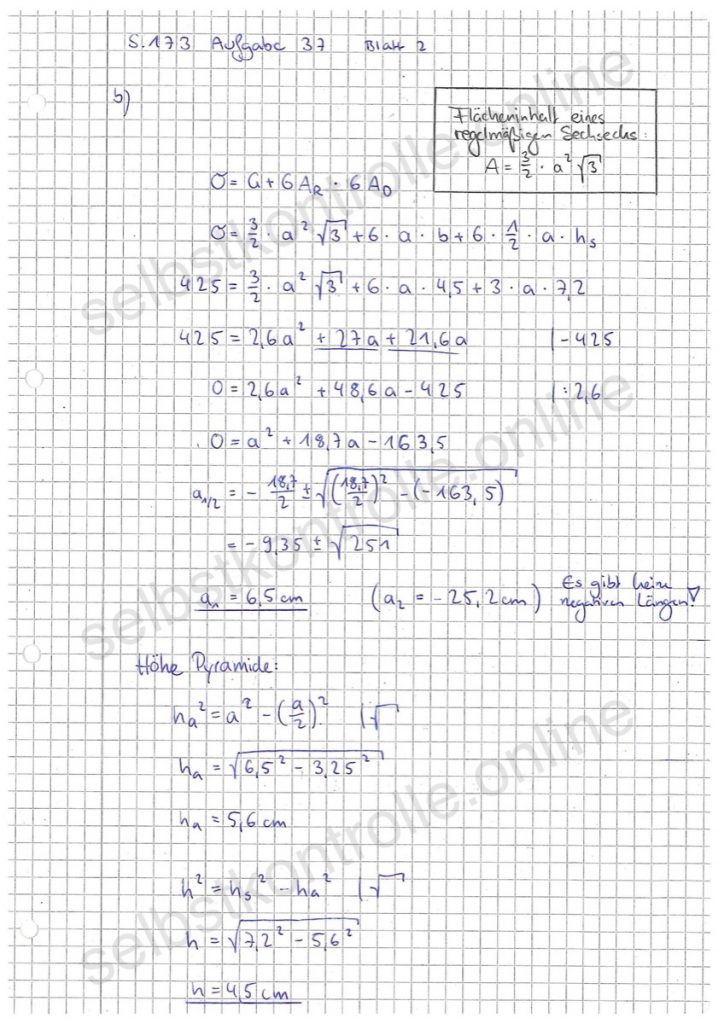 S.173 Aufgabe 37 Blatt 2
b)
Flächeninhalt eines
regelmäßigen Sechsecks:
A = 3/2 · a² √3
O = G + 6 A_R · 6 A_D
O = 3/2 · a² √3 + 6 · a · b + 6 · 1/2 · a · h_s
425 = 3/2 · a² √3 + 6 · a · 4,5 + 3 · a · 7,2
425 = 2,6a² + 27a + 21,6a | - 425
0 = 2,6a² + 48,6a - 425 | : 2,6
0 = a² + 18,7a - 163,5
a_1/2 = - 18,7/2 ± √((18,7/2)² - (-163,5))
= - 9,35 ± √251
a_1 = 6,5 cm (a_2 = - 25,2 cm) Es gibt keine
negativen Längen!
Höhe Pyramide:
h_a² = a² - (a/2)² | √
h_a = √(6,5² - 3,25²)
h_a = 5,6 cm
h² = h_s² - h_a² | √
h = √(7,2² - 5,6²)
h = 4,5 cm
selbstkontrolle.online
selbstkontrolle.online
selbstkontrolle.online